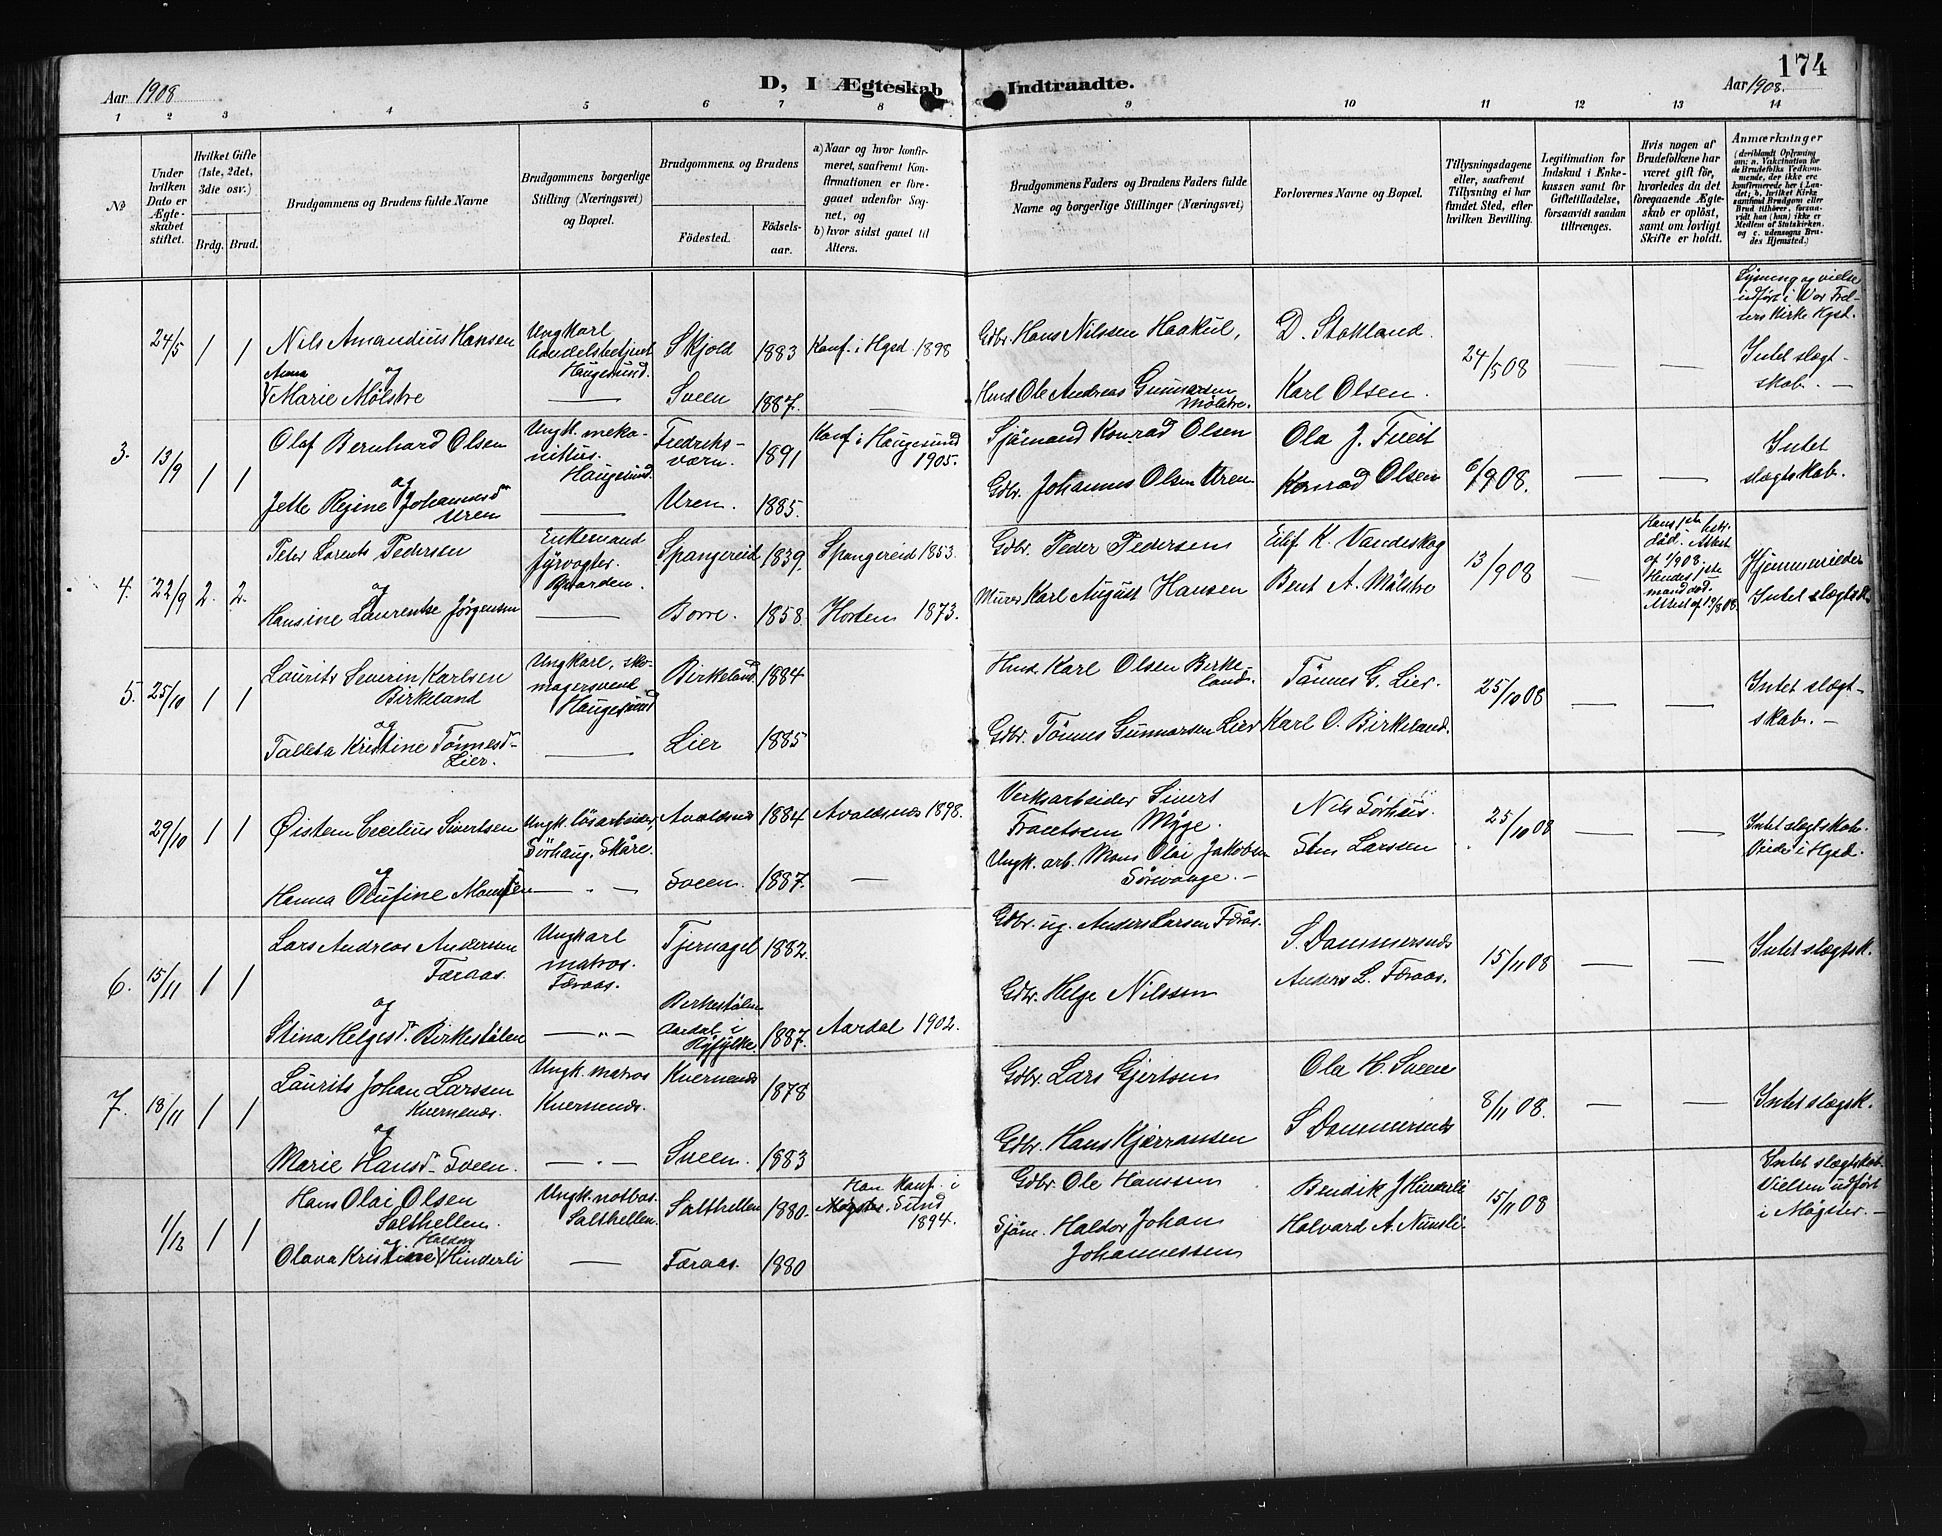 174
D, I Ægteskab Indtraadte.
Aar 1908
Aar 1908.
1 2 3 4 5 6 7 8 9 10 11 12 13 14
No
Under hvilken Dato er Ægteskabet stiftet.
Hvilket Gifte (1ste, 2det, 3die osv.)
Brdg. Brud.
Brudgommens og Brudens fulde Navne
Brudgommens borgerlige Stilling (Næringsvei) og Bopæl.
Brudgommens og Brudens
Födested. Födsels-aar.
a) Naar og hvor konfirmeret, saafremt Konfirmationen er foregaaet udenfor Sognet, og
b) hvor sidst gaaet til Alters.
Brudgommens Faders og Brudens Faders fulde Navne og borgerlige Stillinger (Næringsvei)
Forlovernes Navne og Bopæl.
Tillysningsdagene eller, saafremt Tillysning ei har fundet Sted, efter hvilken Bevilling.
Legitimation for Indskud i Enkekassen samt for Giftetilladelse, forsaavidt saadan tiltrænges.
Hvis nogen af Brudefolkene har været gift för, hvorledes da det foregaaende Ægteskab er oplöst, samt om lovligt Skifte er holdt.
Anmærkninger
24/5 1 1
Nils Amandius Hansen
og
Anna
Marie Mölstre
Ungkarl
handelsbetjent
Haugesund.
Skjold 1883
Sveen 1887.
Konf. i Hgsd. 1898
Gdbr. Hans Nilssen Haakul,
Hmd Ole Andreas Gunnarsen
Mölstre.
D. Stakland.
Karl Olsen.
24/5 08
Lysning og vielse
udført i Vor Frel-
sers Kirke Hgsd.
Intet slægt-
skab. —
3. 13/9 1 1
Olaf Bernhard Olsen
og
Jette Regine Johannesd.
Uren
Ungk. meka-
nikus.
Haugesund.
Fredriks-
værn. 1891
Uren. 1885.
Konf. i Haugesund
1905.
Sjömand Konrad Olsen
Gdbr. Johannes Olsen Uren
Ola J. Tveit
Konrad Olsen
6/9 08.
Intet
slægtskab.
4. 22/9 2. 2.
Peter Lorents Pedersen
og
Hansine Laurentse Jörgensen
Enkemand
fyrvogter.
Ryvarden.
Spangereid 1839.
Borre. 1858.
Spangereid 1853.
Horten 1873.
Gdbr. Peder Pedersen
Murer Karl August Hansen
Eilef K. Vandeskog
Bent A. Mölstre
13/9 08
Hans 1ste hstr.
död. Attest
af 1/9 08
Hendes 1ste
mand död.
Attest af 19/8 08.
Hjemmeviede
Intet slægtsk.
5. 25/10 1 1
Laurits Severin Karlsen
Birkeland
og
Talleta Kristine Tönnesd.
Lier.
Ungkarl, sko-
magersvend
Haugesund
Birkeland. 1884
Lier 1885
Hmd. Karl Olsen Birke-
land.
Gdbr. Tönnes Gunnarsen Lier
Tönnes G. Lier.
Karl O. Birkeland.
25/10 08
Intet slægt-
skab. —
29/10 1 1
Øistein Cecelius Sivertsen
og
Hanna Olufine Monsen
Ungk. lösarbeider,
Sörhaug. Skåre.
Avaldsnes 1884
Sveen. 1887.
Avaldsnes 1898.
Verksarbeider Sivert
Myge.
Ungk. arb. Mons Olai Jakobsen
Sörvaage. —
Nils Sörhus.
Sten Larssen
25/10 08
Intet slægtskab.
Viede i Hgsd.
6. 15/11 1 1
Lars Andreas Andersen
Færaas.
og
Stina Helgesd. Birkestölen
Ungkarl
matros.
Færaas.
Tjernagel 1882.
Birkestölen
Aardal i
Ryfylke. 1887.
Aardal 1902.
Gdbr. og Anders Larsen Færås.
Gdbr. Helge Nilssen
S Dommersnes
Anders L. Færaas.
15/11 08
Intet slægtsk.
7. 18/11 1 1
Laurits Johan Larssen
Kvernenes.
og
Marie Hansd. Sveen.
Ungk. matros
Kvernenes.
Kvernenes 1878
Sveen. 1883
Gdbr. Lars Gjertsen
Gdbr. Hans Kjerransen
Ole H. Sveen
S Dommersnes
8/11 08.
Intet slægsk.
1/12 1 1
Hans Olai Olsen
Salthellen.
og
Haldorsd
Olava Kristine Hinderli
Ungk. notbas.
Salthellen.
Salthellen 1880.
Færaas. 1880
Han konf. i
Møgster, Sund
1894.
Gdbr. Ole Hanssen
Sjöm. Haldor Johan
Johannessen
Bendik J Hinderli
Halvard A. Nunsli
15/11 08
Intet slægtskab.
Vielsen udført
i Møgster. —